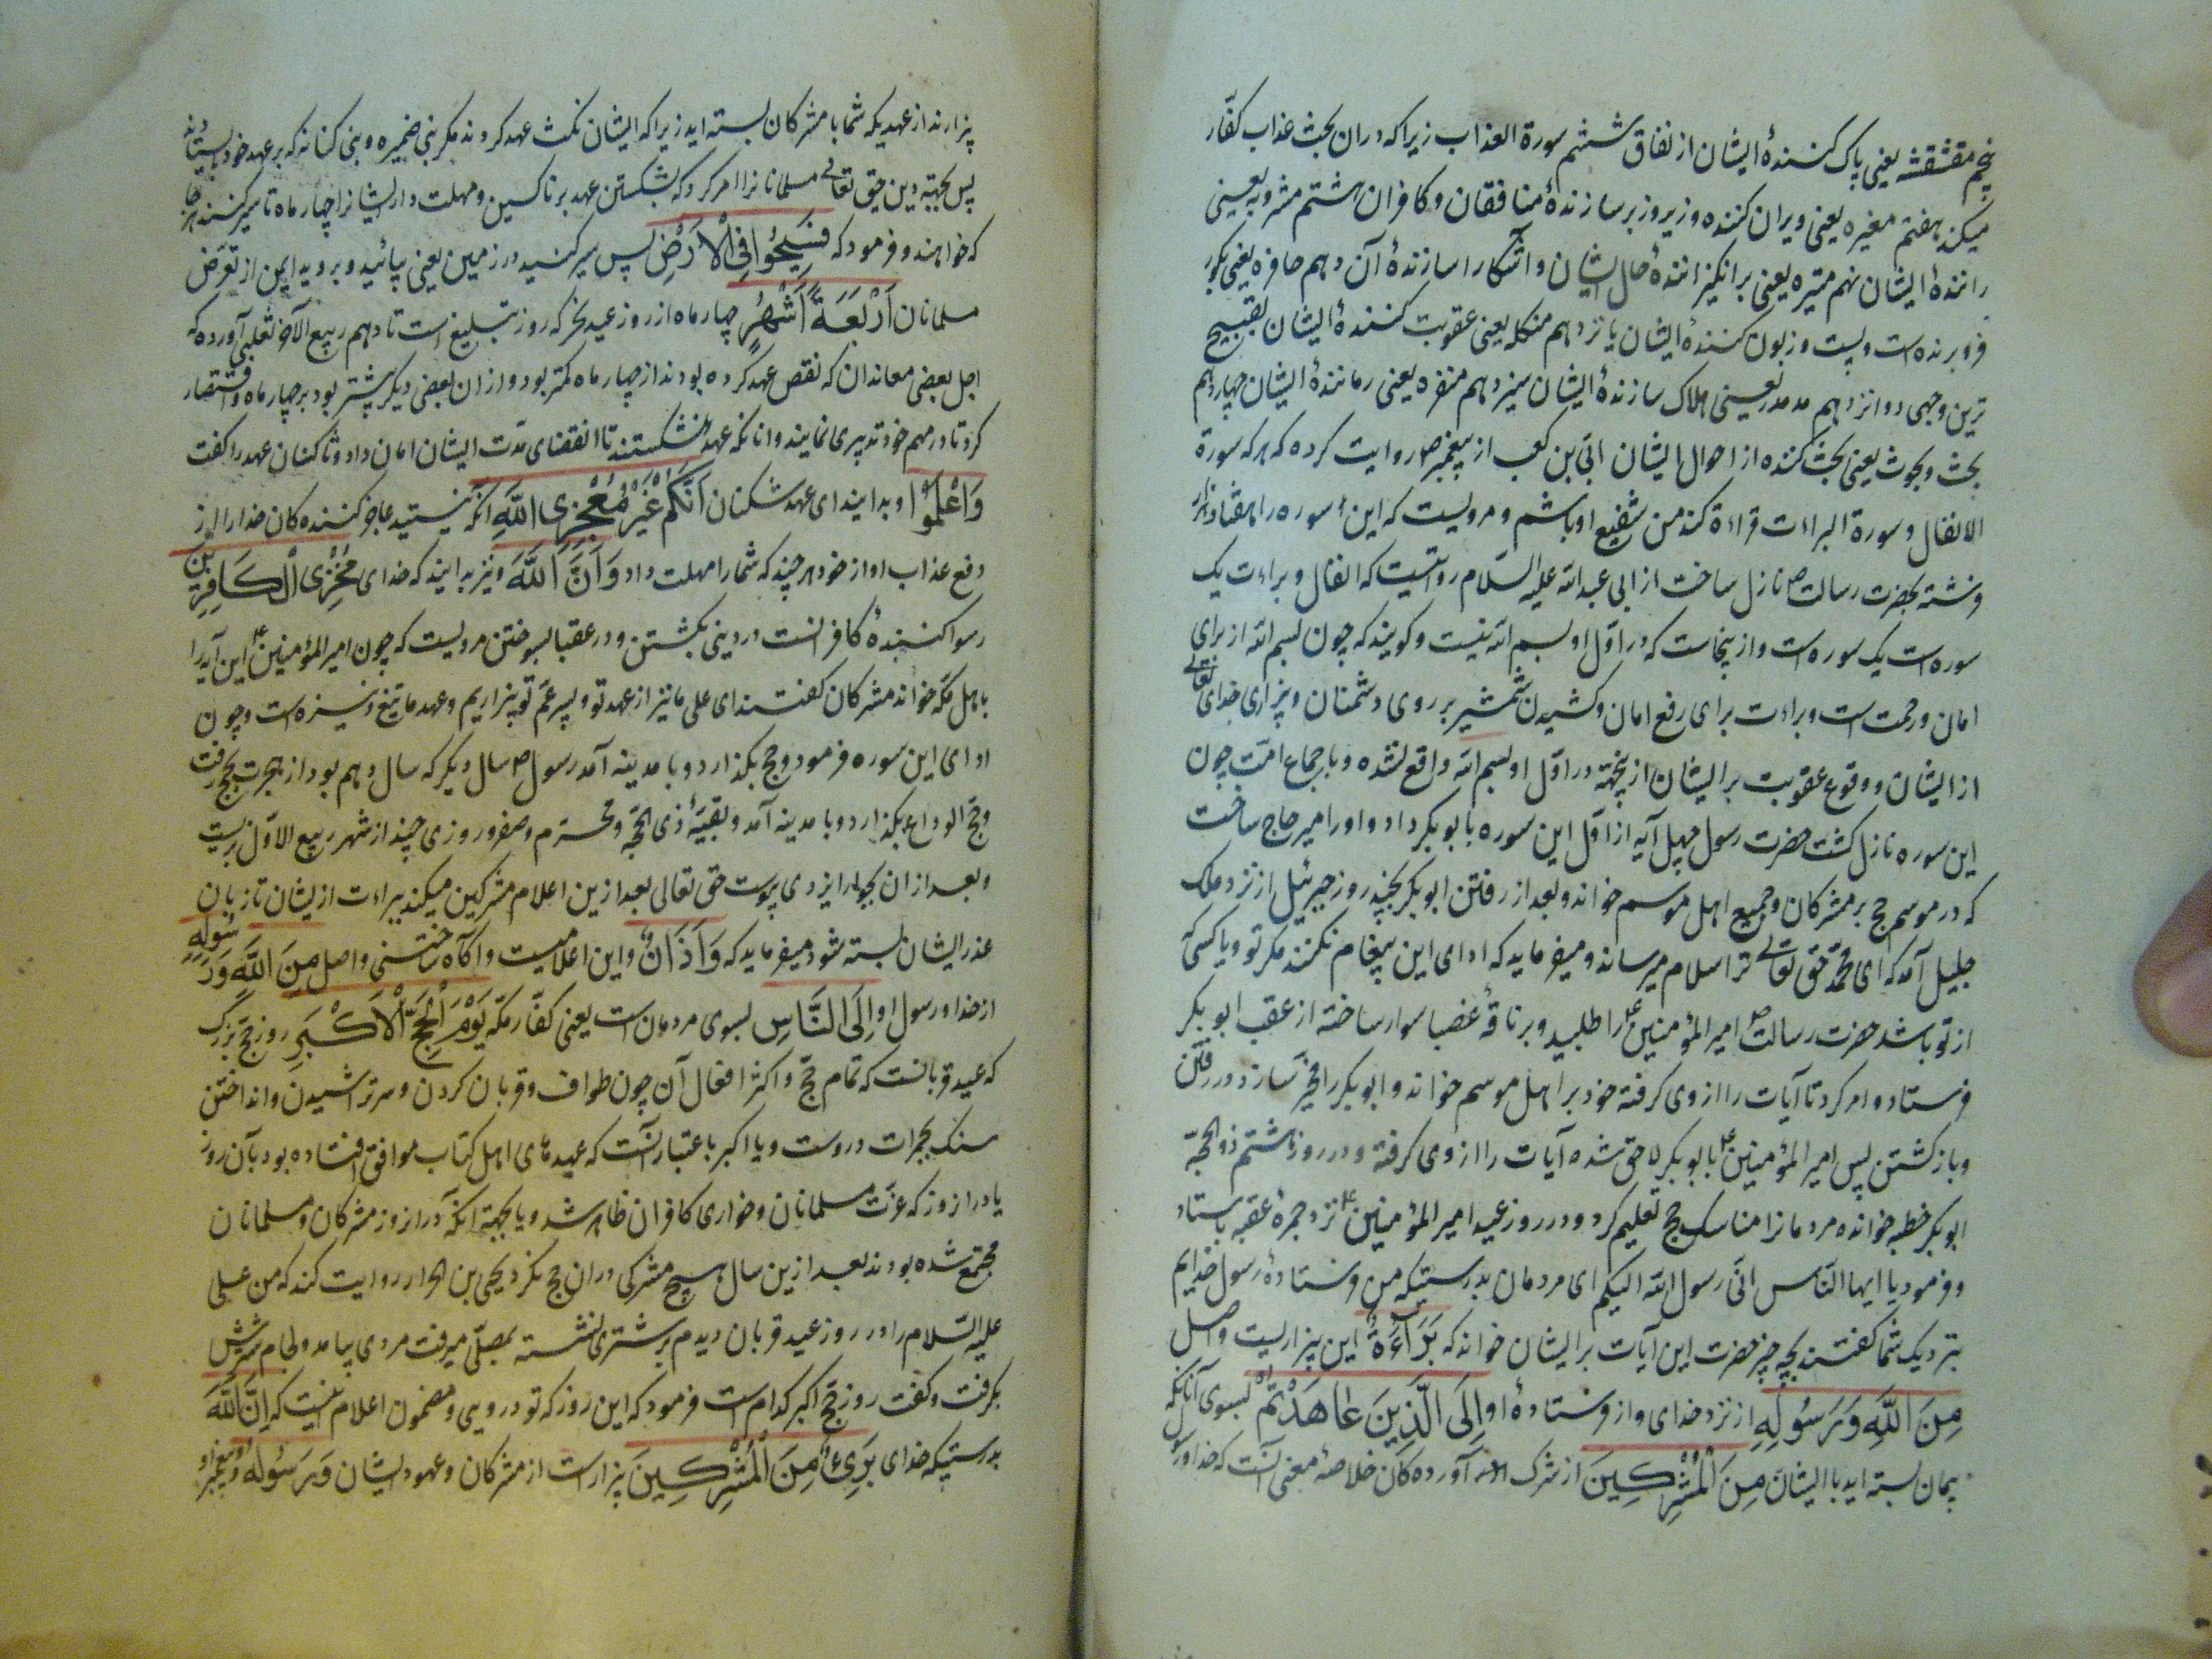 پنجم مقشقشه یعنی پاک کنندهٔ ایشان از نفاق ششم سورة العذاب زیرا که دران بحث عذاب کفّار
میکند هفتم مغیره یعنی ویران کننده و زیر و زبر سازندهٔ منافقان و کافران هشتم مشروبه یعنی
رانندهٔ ایشان نهم مثیره یعنی برانگیزانندهٔ حال ایشان و آشکارا سازندهٔ آن دهم حافزه یعنی بکور
فرو برنده است و پست و زبون کنندهٔ ایشان یازدهم منکله یعنی عقوبت کنندهٔ ایشان بقبیح
ترین وجهی دوازدهم مدمدر یعنی هلاک سازندهٔ ایشان سیزدهم منفره یعنی رمانندهٔ ایشان چهاردهم
بحث و بحوث یعنی بحث کننده از احوال ایشان ابّی بن کعب از پیغمبر ص روایت کرده که هرکه سورة
الانفال و سورة البراءت قراءة کند من شفیع او باشم و مرویست که این سوره را با هفتاد هزار
فرشته بحضرت رسالت ص نازل ساخت از ابی عبد الله علیه السّلام روایتست که انفال و براءت یک
سوره است یک سوره است و ازینجاست که در اوّل او بسم الله نیست و کویند که چون بسم الله از برای
امان و رحمت است و براءت برای رفع امان و کشیدن شمشیر بر روی دشمنان و بیزاری خدای تعالی
از ایشان و وقوع عقوبت بر ایشان ازینجهته در اوّل او بسم الله واقع نشده و باجماع امّت چون
این سوره نازل کشت حضرت رسول چهل آیه از اوّل این سوره بابوبکر داد و اورا امیر حاج ساخت
که در موسم حج بر مشرکان و جمیع اهل موسم خواند و بعد از رفتن ابوبکر بچند روز جبرئیل از نزد ملک
جلیل آمد که ای محمّد حق تعالی ترا سلام میرساند و میفرماید که ادای این پیغام نکند مکر تو و یا کسی که
از تو باشد حضرت رسالت ص امیر المؤمنین ع را طلبید و بر ناقهٔ غضبا سوار ساخته از عقب ابوبکر
فرستاد و امر کرد تا آیات را از وی کرفته خود بر اهل موسم خواند و ابوبکر را مخیّر سازد در رفتن
و بازکشتن پس امیر المؤمنین ع بابوبکر لاحق شده آیات را از وی کرفته و در روز هشتم ذوالحجّه
ابوبکر خطبه خوانده مردمانرا مناسک حج تعلیم کرد و در روز عید امیر المؤمنین ع نزد جمرهٔ عقبه بایستاد
و فرمود یا ایها النّاس انّی رسول الله الیکم ای مردمان بدرستیکه من فرستادهٔ رسول خدایم
بنزدیک شما کفتند بچه چیز حضرت این آیات بر ایشان خواند که بَرَآءَةٌ این بیزاریست واصل
مِنَ اللّٰهِ وَرَسُولِهِ از نزد خدای و از فرستادهٔ او اِلَی الَّذِینَ عَاهَدْتُمْ بسوی آنانکه
پیمان بسته اید با ایشان مِنَ الْمُشْرِکِینَ از شرک آورده کان خلاصهٔ معنی آنست که خدا و رسول
بیزارند از عهدیکه شما با مشرکان بسته اید زیرا که ایشان نکث عهد کردند مکر بنی ضمیره و بنی کنانه که بر عهد خود بایستادند
پس بجهته دین حق تعالی مسلمانانرا امر کرد که بشکستن عهد برناکسین و مهلت دار ایشانرا چهار ماه تا سیر کنند هرجا
که خواهند و فرمود که فَسِیحُوا فِی الْاَرْضِ پس سیر کنید در زمین یعنی بیائید و بروید ایمن از تعرّض
مسلمانان اَرْبَعَةَ اَشْهُرٍ چهار ماه از روز عید نحر که روز تبلیغ است تا دهم ربیع الآخر ثعلبی آورده که
اجل بعضی معاندان که نقض عهد کرده بودند از چهار ماه کمتر بود و ازان بعضی دیکر بیشتر بود بر چهار ماه اقتصار
کرد تا در مهم خود تدبیری نمایند و انانکه عهد نشکستند تا انقضای مدّت ایشان امان داد و ناکثان عهد را کفت
وَاعْلَمُوا و بدانید ای عهد شکنان اَنَّکُمْ غَیْرُ مُعْجِزِی اللّٰهِ انکه نیستید عاجز کننده کان خدا را از
دفع عذاب او از خود هرچند که شما را مهلت داد وَاَنَّ اللّٰهَ و نیز بدانید که خدای مُخْزِی الْکَافِرِینَ
رسوا کنندهٔ کافرانست در دنیی بکشتن و در عقبا بسوختن مرویست که چون امیر المؤمنین ع این آیه را
باهل مکّه خواند مشرکان کفتند ای علی ما نیز از عهد تو و پسر عمّ تو بیزاریم و عهد ما تیغ و نیزه است و چون
ادای این سوره فرمود و حج بکذارد و با مدینه آمد رسول ص سال دیکر که سال دهم بود از هجرت بحج رفت
و حجّ الوداع بکذارد و با مدینه آمد و بقیّهٔ ذی الحجّه و محرّم و صفر و روزی چند از شهر ربیع الاوّل بزیست
و بعد ازان بجوار ایزدی پیوست حق تعالی بعد ازین اعلام مشرکین میکند ببراءت ازیشان تا زبان
عذر ایشان بسته شود میفرماید که وَاَذَانٌ و این اعلامیست و آکاه ساختنی واصل مِنَ اللّٰهِ وَرَسُولِهِ
از خدا و رسول او اِلَی النَّاسِ بسوی مردمان است یعنی کفّار مکّه یَوْمَ الْحَجِّ الْاَکْبَرِ روز حجّ بزرک
که عید قربانست که تمام حجّ و اکثر افعال آن چون طواف و قربان کردن و سر تراشیدن و انداختن
سنک بجمرات دروست و یا اکبر باعتبار آنست که عیدهای اهل کتاب موافق افتاده بود بآن روز
یا دراز روز که عزّت مسلمانان و خواری کافران ظاهر شد و یا بجهته انکه دران روز مشرکان و مسلمانان
مجتمع شده بودند بعد ازین سال هیچ مشرکی دران حج نکرد یحیی بن الجزار روایت کند که من علی
علیه السّلام را در روز عید قربان دیدم بر شتری نشسته بمصلّی میرفت مردی بیامد و لجام شترش
بکرفت و کفت روز حج اکبر کدام است فرمود که این روز که تو در ویی و مضمون اعلام اینست که اِنَّ اللّٰهَ
بدرستیکه خدای بَرِیٓءٌ مِنَ الْمُشْرِکِینَ بیزار است از مشرکان و عهود ایشان وَرَسُولُهُ و پیغمبر او